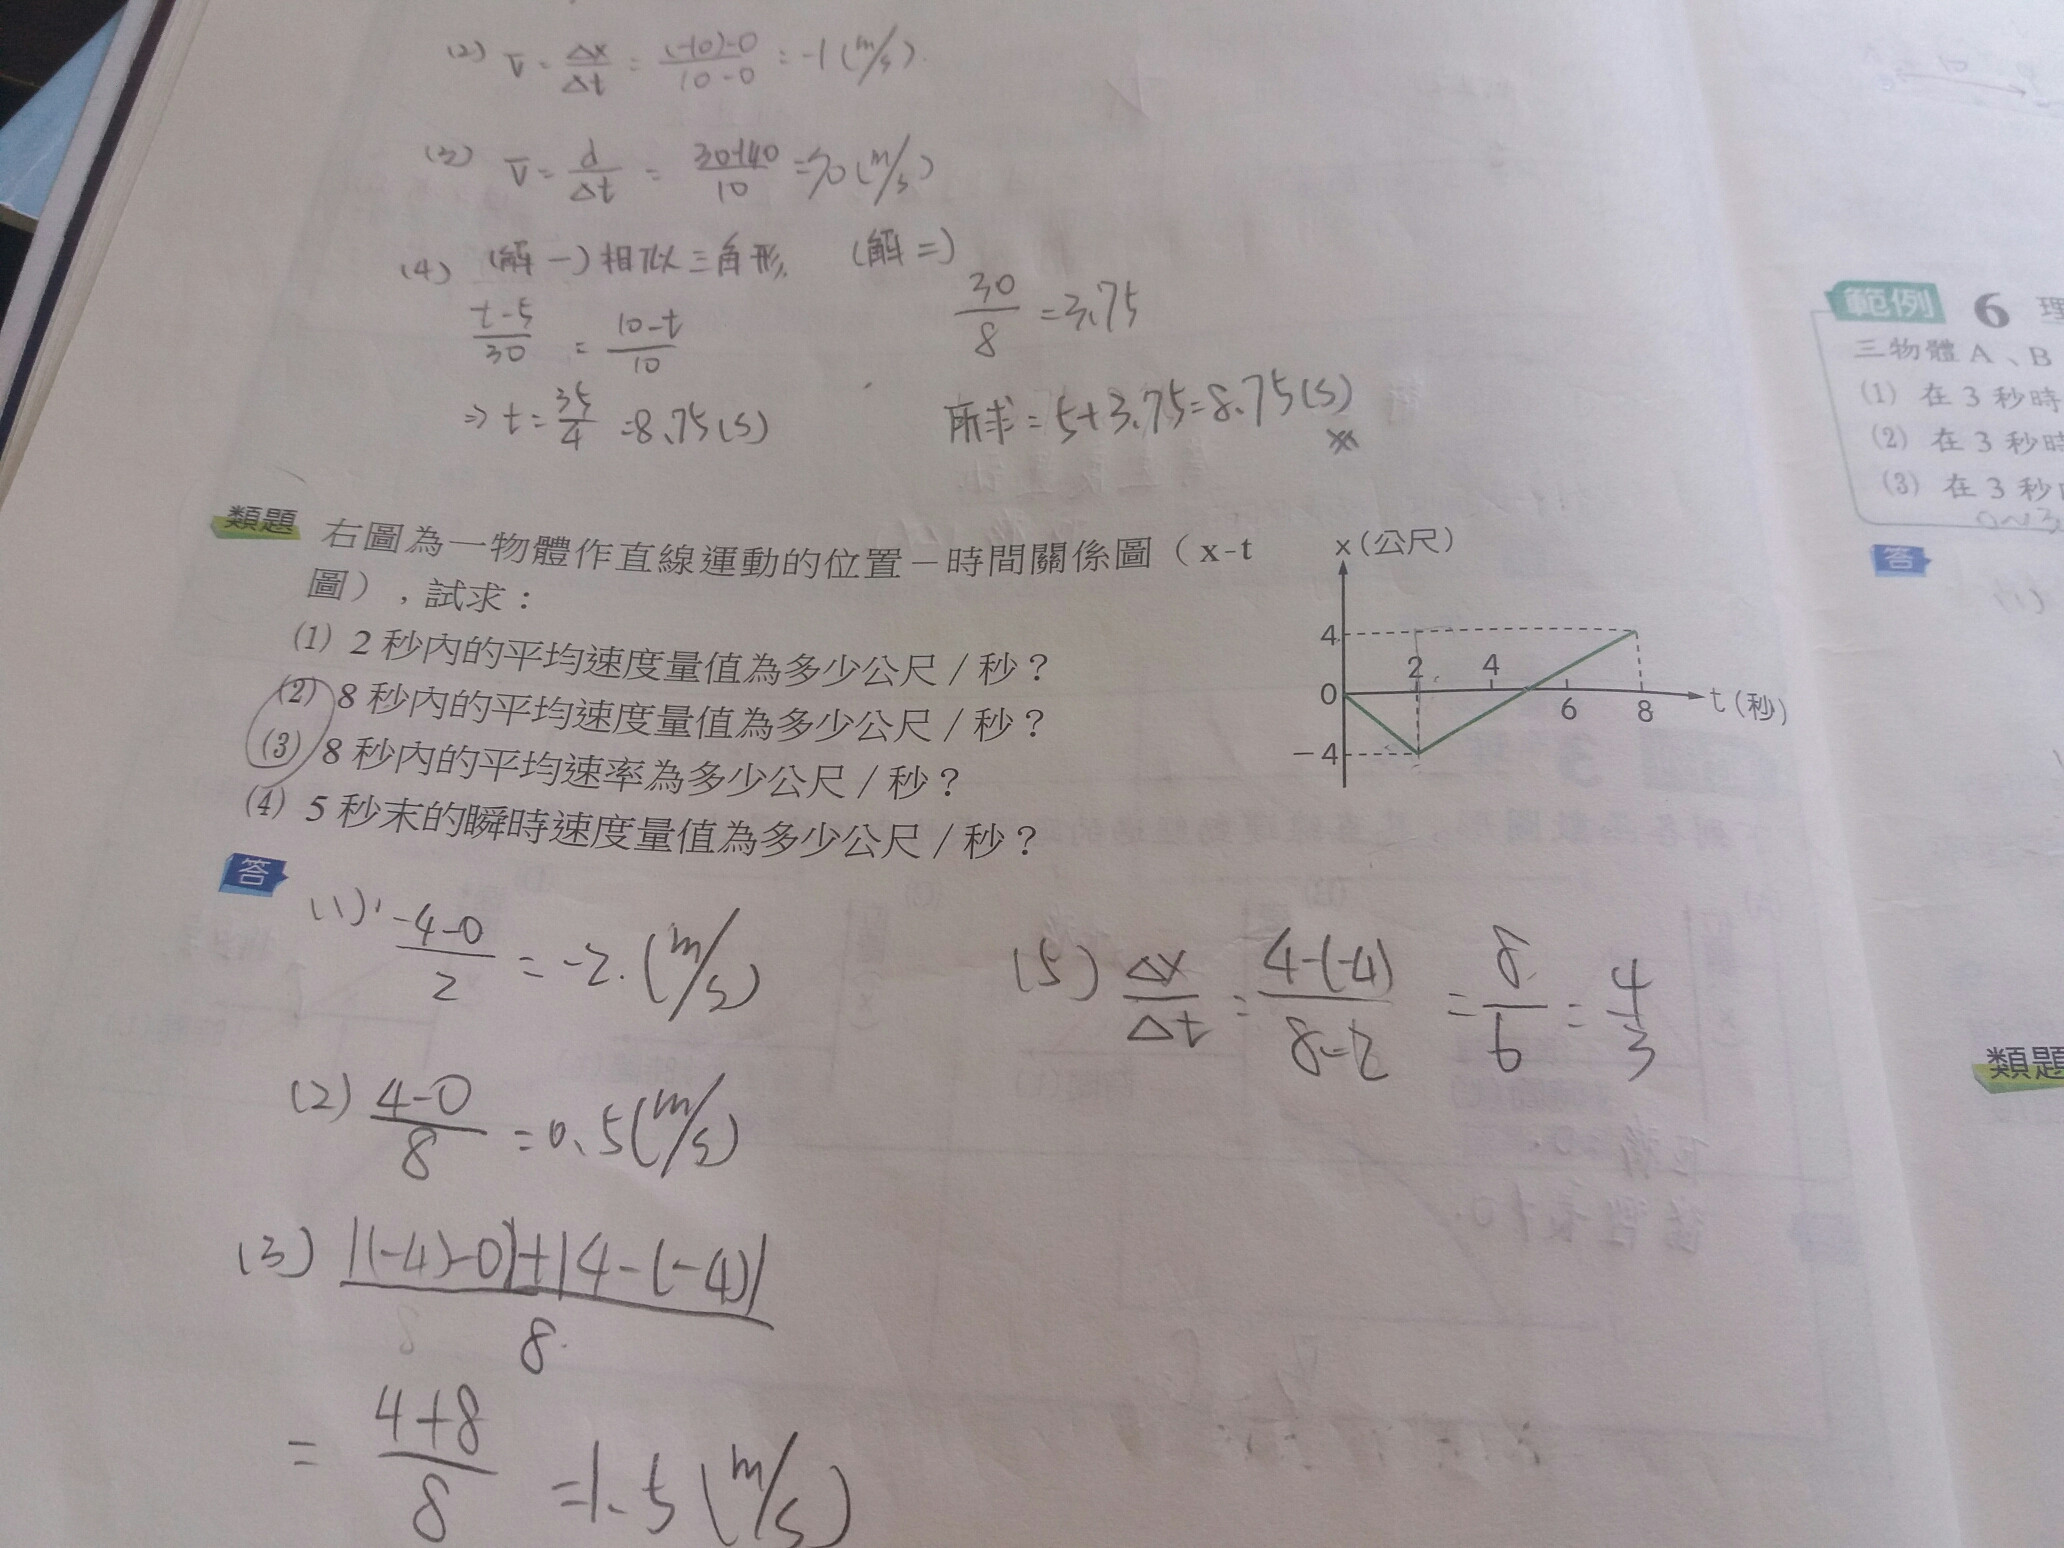 (2) v̄ = Δx/Δt = (-10)-0/10-0 = -1 (m/s).
(3) v̄ = d/Δt = 30+40/10 = 70 (m/s)
(4) (解一) 相似三角形, (解二)
t-5/30 = 10-t/10
30/8 = 3.75
⇒ t = 35/4 = 8.75 (s)
所求 = 5+3.75 = 8.75 (s)
類題 右圖為一物體作直線運動的位置－時間關係圖（x-t
圖），試求：
(1) 2 秒內的平均速度量值為多少公尺／秒？
(2) 8 秒內的平均速度量值為多少公尺／秒？
(3) 8 秒內的平均速率為多少公尺／秒？
(4) 5 秒末的瞬時速度量值為多少公尺／秒？
x(公尺)
4
2 4
0 t(秒)
6 8
−4
答
(1) -4-0/2 = -2. (m/s)
(2) 4-0/8 = 0.5 (m/s)
(3) |(-4)-0|+|4-(-4)|/8.
= 4+8/8 = 1.5 (m/s)
(5) Δx/Δt = 4-(-4)/8-2 = 8/6 = 4/3
範例 6 理
三物體 A、B
(1) 在 3 秒時
(2) 在 3 秒時
(3) 在 3 秒
0~3
答
類題